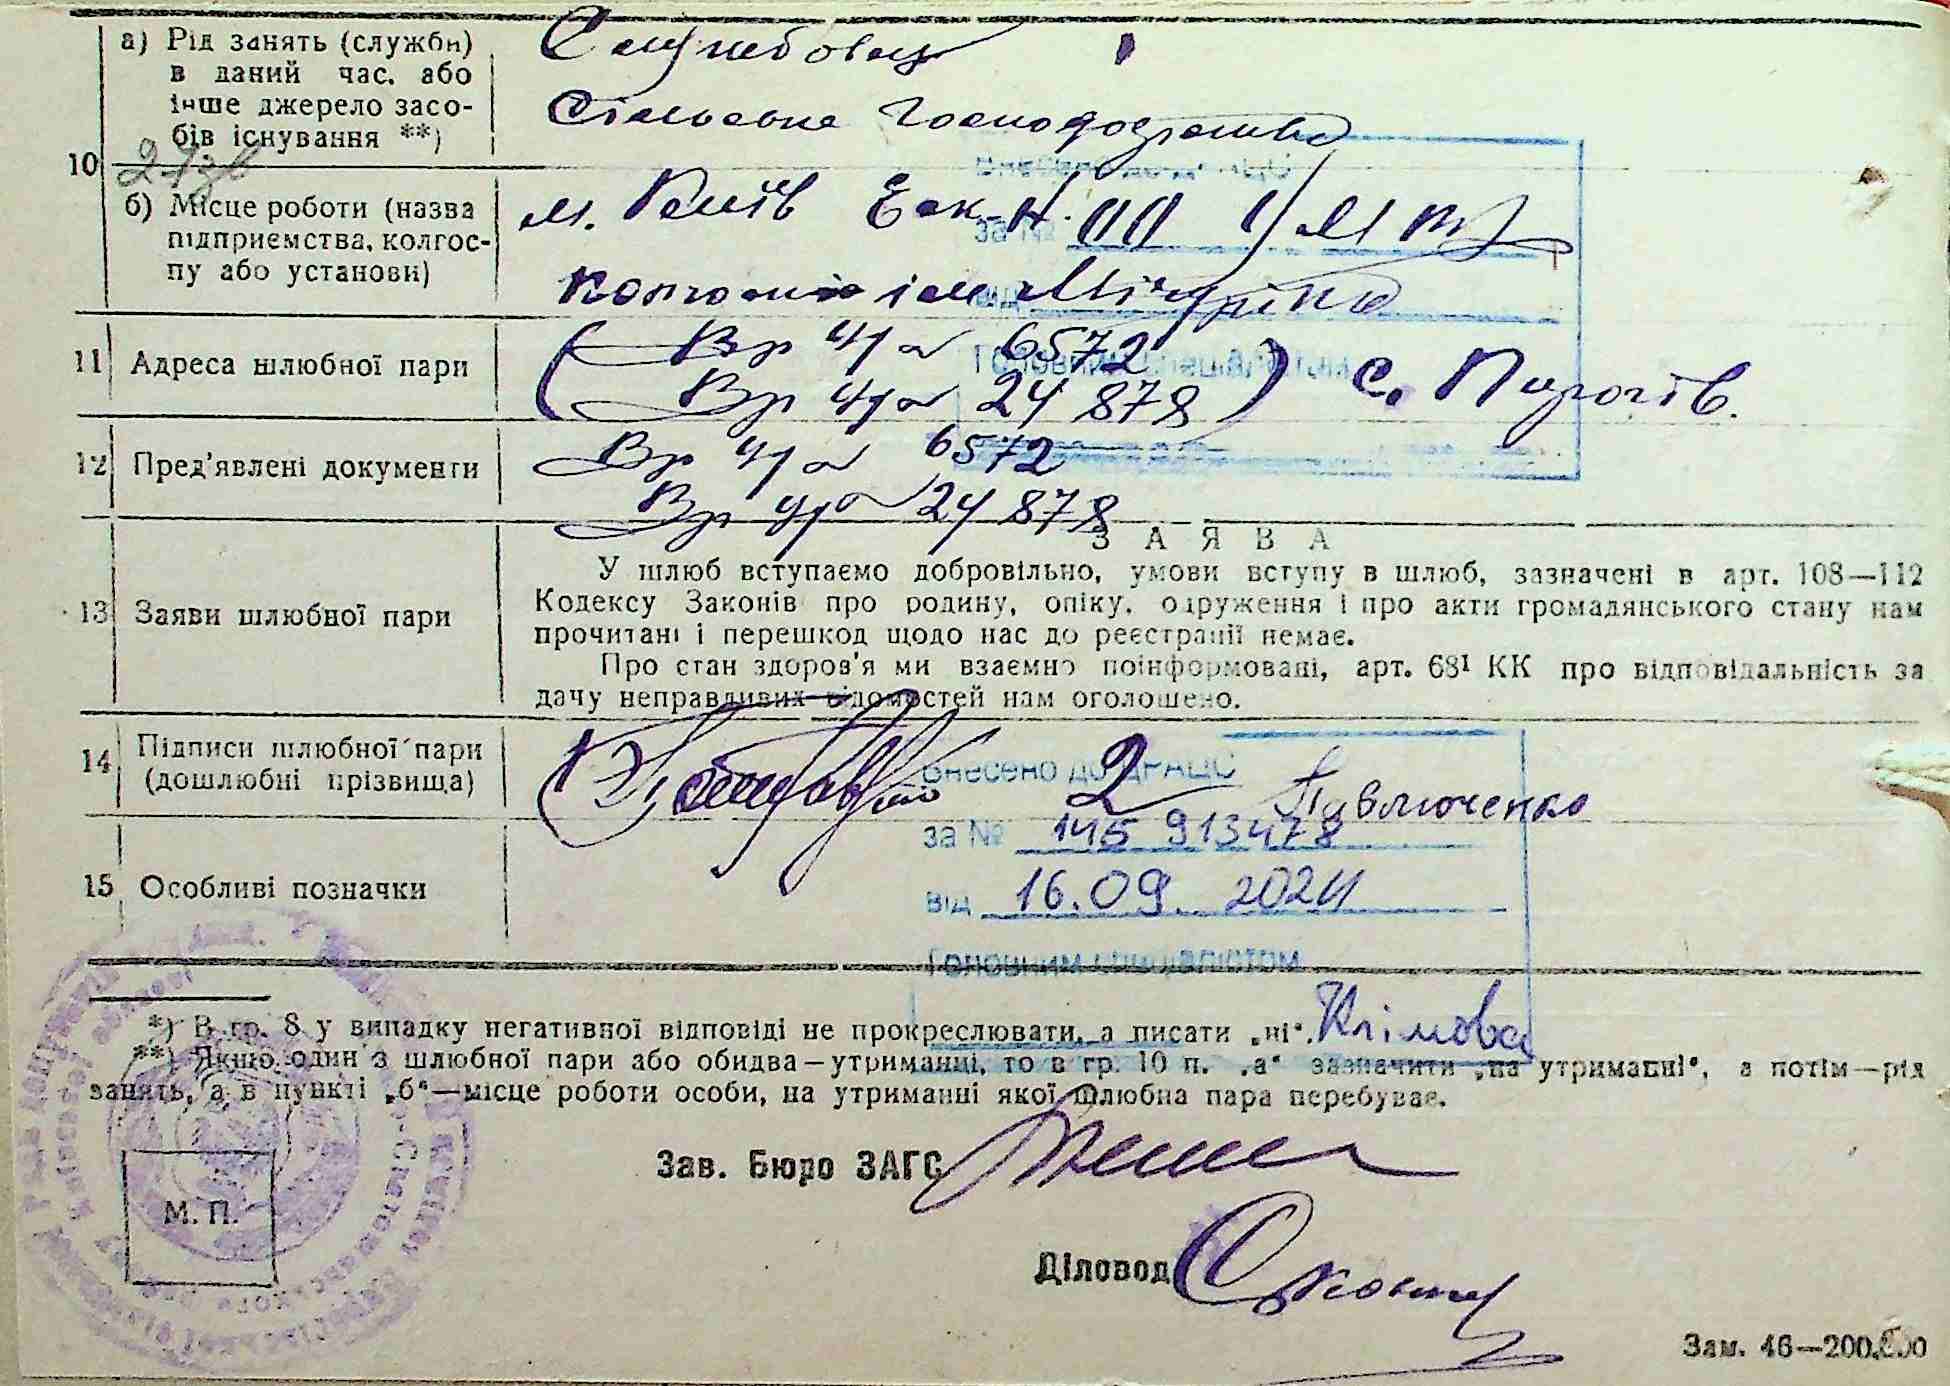 а) Рід занять (служби)
в даний час. або
інше джерело засо-
бів існування **)
Службовец
Сільське господарство
10
б) Місце роботи (назва
підприємства, колгос-
пу або установи)
м. Київ
ім. Мічуріна
за №
від
11 Адреса шлюбної пари
6572
24 878
с. Пирогів.
12 Пред'явлені документи
6572
24 878
13 Заяви шлюбної пари
ЗАЯВА
У шлюб вступаємо добровільно, умови вступу в шлюб, зазначені в арт. 108—112
Кодексу Законів про родину, опіку, одруження і про акти громадянського стану нам
прочитані і перешкод щодо нас до реєстрації немає.
Про стан здоров'я ми взаємно поінформовані, арт. 68¹ КК про відповідальність за
дачу неправдивих відомостей нам оголошено.
14 Підписи шлюбної пари
(дошлюбні прізвища)
2 Павлюченко
Внесено до ДРАЦС
за № 145 913478
від 16.09. 2024
Головним спеціалістом
Клімова
15 Особливі позначки
*) В гр. 8 у випадку негативної відповіді не прокреслювати, а писати „ні“.
**) Якщо один з шлюбної пари або обидва—утриманці, то в гр. 10 п. „а“ зазначити „на утриманні“, а потім—рід
занять, а в пункті „б“—місце роботи особи, на утриманні якої шлюбна пара перебуває.
Зав. Бюро ЗАГС
М. П.
Діловод
Зам. 46—200.000